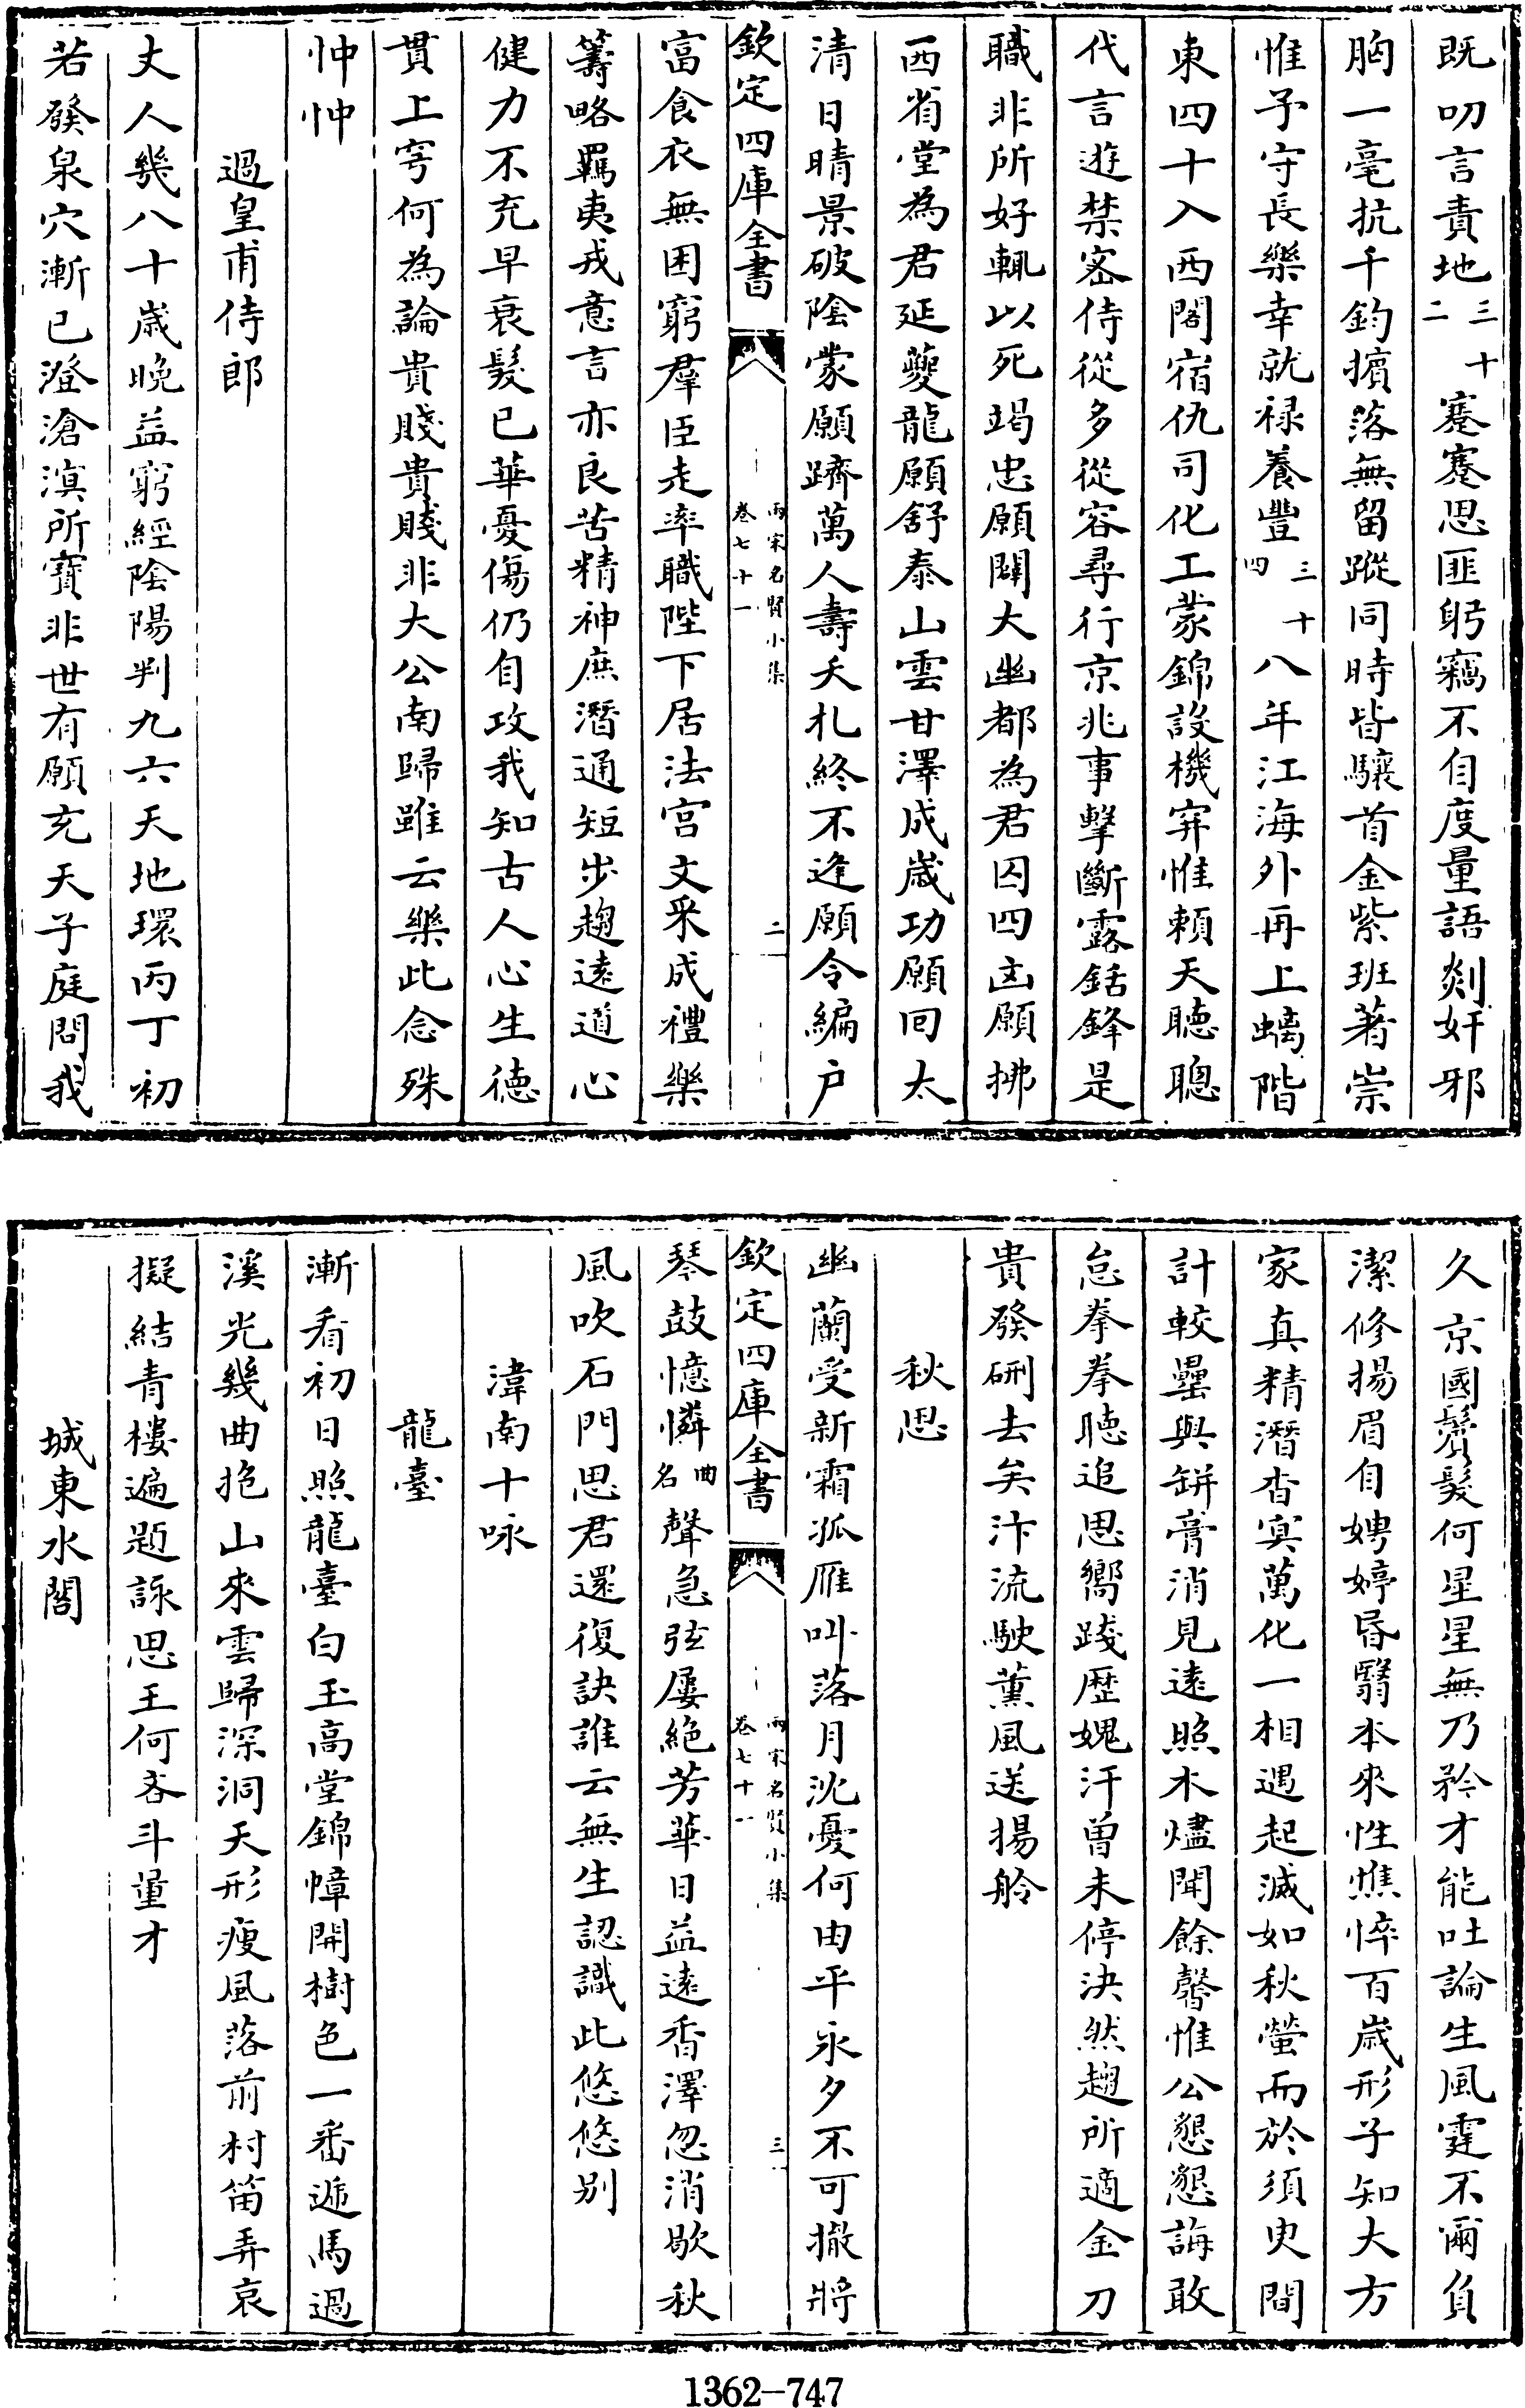 既叨言責地三十二蹇蹇思匪躬竊不自度量語剡奸邪
胸一毫抗千鈞擯落無留蹤同時皆驤首金紫班著崇
惟予守長樂幸就禄養豐三十四八年江海外再上螭階
東四十入西閣宿仇司化工蒙錦設機穽惟賴天聽聰
代言遊禁密侍從多從容尋行京兆事擊斷露銛鋒是
職非所好輒以死竭忠願闢大幽都為君囚四凶願拂
西省堂為君延夔龍願舒泰山雲甘澤成歲功願回太
清日晴景破陰蒙願躋萬人壽夭札終不逢願令編户
欽定四庫全書
兩宋名賢小集
卷七十一
二
富食衣無困窮羣臣走率職陛下居法宫文采成禮樂
籌略羈夷戎意言亦良苦精神庶潛通短步趨遠道心
健力不充早衰髮已華憂傷仍自攻我知古人心生德
貫上穹何為論貴賤貴賤非大公南歸雖云樂此念殊
忡忡
過皇甫侍郎
丈人幾八十歲晚益窮經陰陽判九六天地環丙丁初
若發泉穴漸已澄滄溟所寶非世有願充天子庭問我
久京國鬢髮何星星無乃矜才能吐論生風霆不爾負
潔修揚眉自娉婷昏翳本來性憔悴百歲形子知大方
家真精潛杳冥萬化一相遇起滅如秋螢而於須臾間
計較罍與缾膏消見遠照木燼聞餘馨惟公懇懇誨敢
怠拳拳聽追思嚮踐歷媿汗曽未停決然趨所適金刀
貴發硎去矣汴流駛薰風送揚舲
秋思
幽蘭受新霜孤雁叫落月沈憂何由平永夕不可撤將
欽定四庫全書
兩宋名賢小集
卷七十一
三
琴鼓憶憐曲名聲急弦屢絶芳華日益遠香澤忽消歇秋
風吹石門思君還復訣誰云無生認識此悠悠别
湋南十咏
龍臺
漸看初日照龍臺白玉高堂錦幛開樹色一番遞馬過
溪光幾曲抱山來雲歸深洞天形瘦風落前村笛弄哀
擬結青樓遍題詠思王何吝斗量才
城東水閣
1362-747